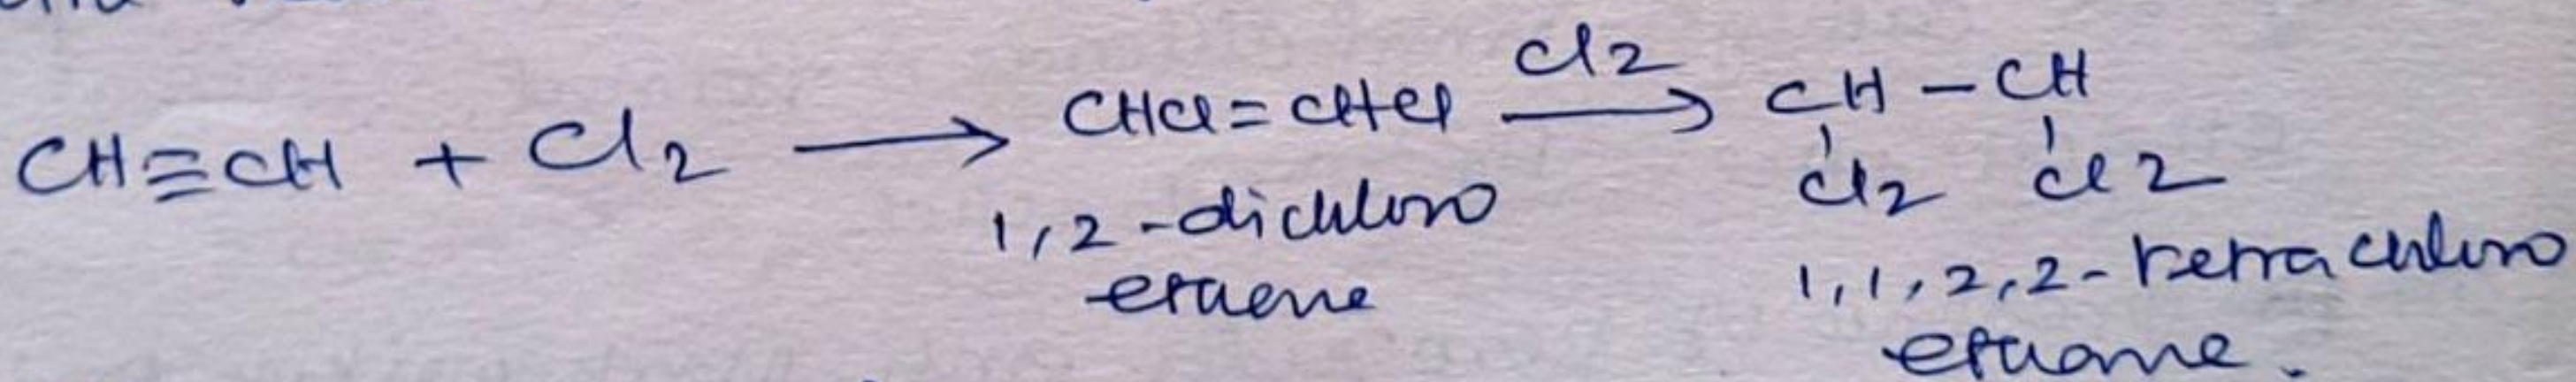 CH≡CH + Cl2 ⟶ CHCl=CHCl —Cl2→ CH–CH
Cl2 Cl2
1,2-dichloro
ethene
1,1,2,2-tetrachloro
ethane.